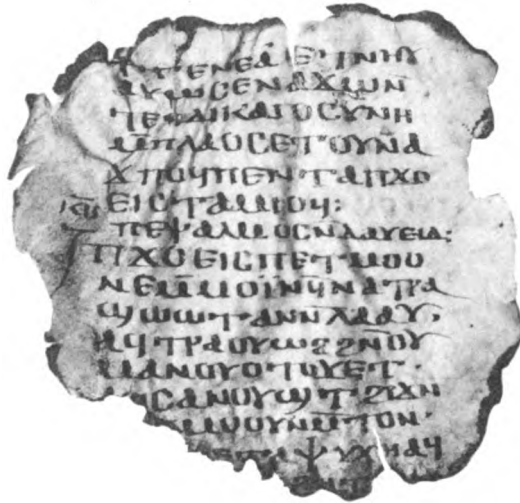 ⲧⲅⲉⲛⲉⲁ ⲉⲧⲛⲏⲩ
ⲁⲩⲱ ⲥⲉⲛⲁϫⲱ ⲛ̄
ⲧⲉϥⲇⲓⲕⲁⲓⲟⲥⲩⲛⲏ
ⲙ̄ⲡⲗⲁⲟⲥ ⲉⲧⲟⲩⲛⲁ
ϫⲡⲟϥ ⲡⲉⲛⲧⲁ ⲡϫⲟ
ⲉⲓⲥ ⲧⲁⲙⲓⲟϥ:
ⲡⲉⲯⲁⲗⲙⲟⲥ ⲛⲇⲁⲩⲉⲓⲇ:
ⲡϫⲟⲉⲓⲥ ⲡⲉⲧⲙⲟⲟ
ⲛⲉ ⲙ̄ⲙⲟⲓ ⲛ̄ϥⲛⲁⲧⲣⲁ
ϣⲱⲱⲧ ⲁⲛ ⲛⲗⲁⲁⲩ·
ⲁϥⲧⲣⲁⲟⲩⲱϩ ϩⲛ̄ ⲟⲩ
ⲙⲁ ⲛⲟⲩⲟⲧⲟⲩⲉⲧ·
ⲥⲁⲛⲟⲩϣⲧ ϩⲓϫⲛ
ⲙⲟⲟⲩ ⲛⲙ̄ⲧⲟⲛ·
ⲧⲁⲯⲩⲭⲏ ⲁϥ